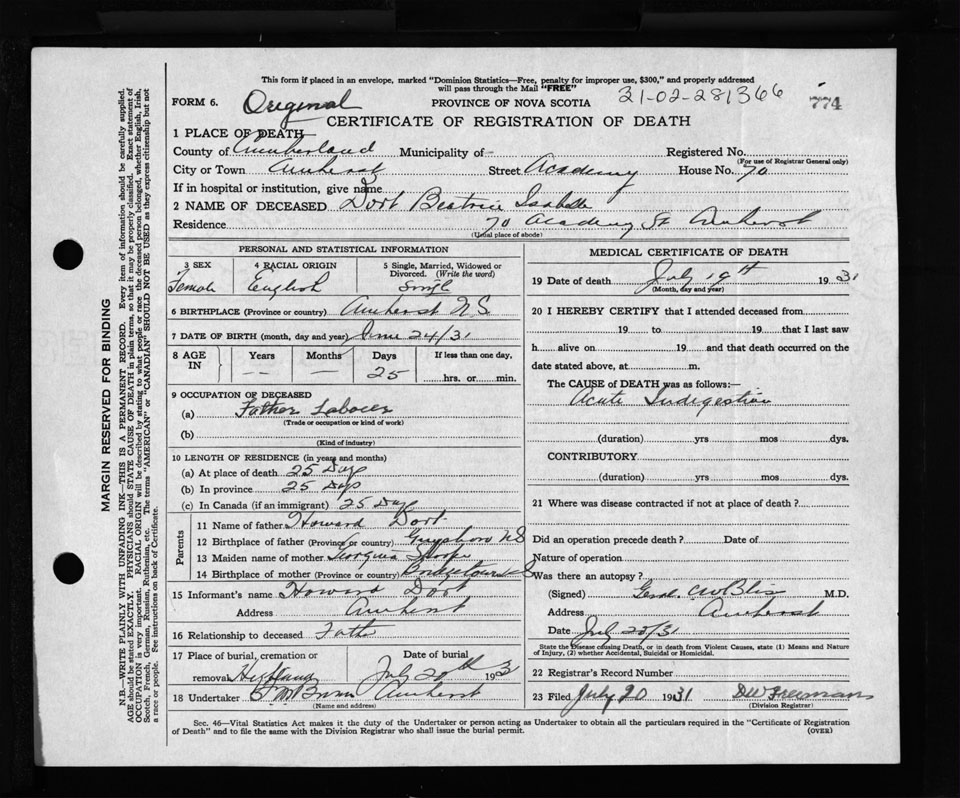 This form if placed in an envelope, marked "Dominion Statistics—Free, penalty for improper use, $300," and properly addressed
will pass through the Mail "FREE"
31-02-281366
774
FORM 6.
Original
PROVINCE OF NOVA SCOTIA
CERTIFICATE OF REGISTRATION OF DEATH
1 PLACE OF DEATH
County of Cumberland Municipality of - Registered No.
(For use of Registrar General only)
City or Town Amherst Street Academy House No. 70
If in hospital or institution, give name
2 NAME OF DECEASED Dort Beatrice Isabelle
Residence 70 Academy St Amherst
(Usual place of abode)
PERSONAL AND STATISTICAL INFORMATION
3 SEX 4 RACIAL ORIGIN 5 Single, Married, Widowed or
Divorced. (Write the word)
Female English Single
6 BIRTHPLACE (Province or country) Amherst N.S.
7 DATE OF BIRTH (month, day and year) June 24/31
8 AGE IN Years Months Days If less than one day,
-- — 25 hrs. or min.
9 OCCUPATION OF DECEASED
(a) Father Laborer
(Trade or occupation or kind of work)
(b)
(Kind of industry)
10 LENGTH OF RESIDENCE (in years and months)
(a) At place of death 25 Days
(b) In province 25 Days
(c) In Canada (if an immigrant) 25 Days
Parents
11 Name of father Howard Dort
12 Birthplace of father (Province or country) Guysboro NS
13 Maiden name of mother Georgina
14 Birthplace of mother (Province or country) Bridgetown NS
15 Informant's name Howard Dort
Address Amherst
16 Relationship to deceased Father
17 Place of burial, cremation or removal Date of burial
July 20th 1931
18 Undertaker Amherst
(Name and address)
MEDICAL CERTIFICATE OF DEATH
19 Date of death July 19th 1931
(Month, day and year)
20 I HEREBY CERTIFY that I attended deceased from
19 to 19 that I last saw
h alive on 19 and that death occurred on the
date stated above, at m.
The CAUSE of DEATH was as follows:—
Acute Indigestion
(duration) yrs mos dys.
CONTRIBUTORY
(duration) yrs mos dys.
21 Where was disease contracted if not at place of death?
Did an operation precede death? Date of
Nature of operation
Was there an autopsy?
(Signed) C W Bliss M.D.
Address Amherst
Date July 20/31
State the Disease causing Death, or in death from Violent Causes, state (1) Means and Nature
of Injury, (2) whether Accidental, Suicidal or Homicidal.
22 Registrar's Record Number
23 Filed July 20 1931 DW Freeman
(Division Registrar)
Sec. 46—Vital Statistics Act makes it the duty of the Undertaker or person acting as Undertaker to obtain all the particulars required in the "Certificate of Registration
of Death" and to file the same with the Division Registrar who shall issue the burial permit.
(OVER)
MARGIN RESERVED FOR BINDING
N.B.—WRITE PLAINLY WITH UNFADING INK—THIS IS A PERMANENT RECORD. Every item of information should be carefully supplied.
AGE should be stated EXACTLY. PHYSICIANS should STATE CAUSE OF DEATH in plain terms, so that it may be properly classified. Exact statement of
OCCUPATION is very important. RACIAL ORIGIN will be described by stating to what people or race the deceased person belonged, whether English, Irish,
Scotch, French, German, Russian, Ruthenian, etc. The terms "AMERICAN" or "CANADIAN" SHOULD NOT BE USED as they express citizenship but not
a race or people. See instructions on back of Certificate.